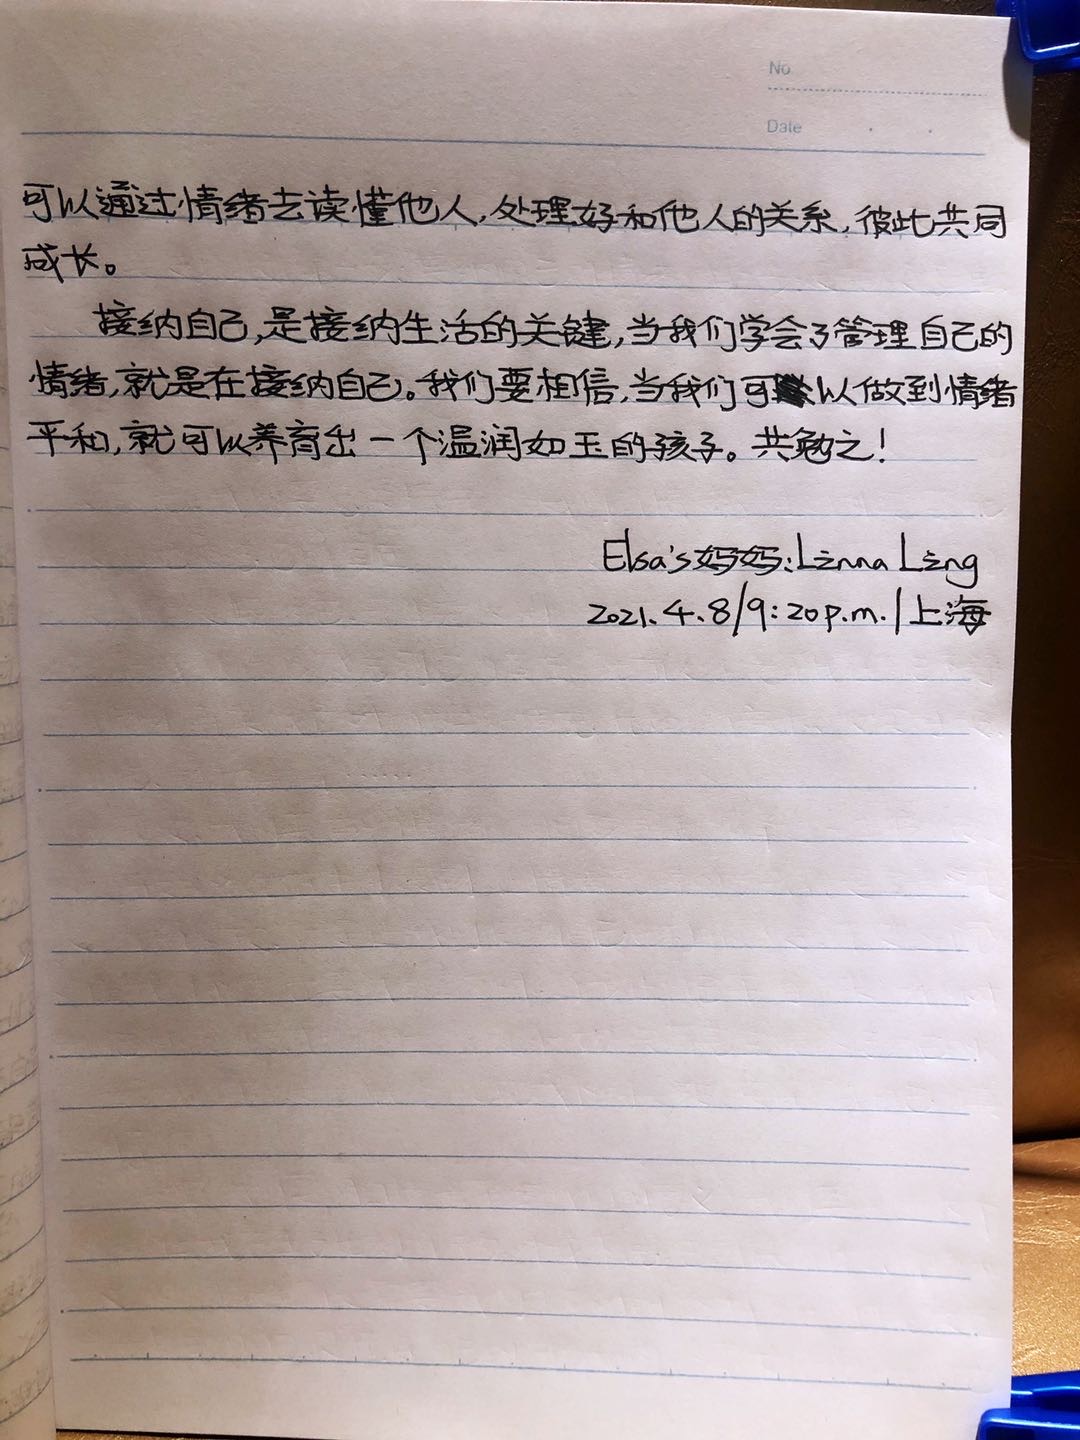 No
Date
可以通过情绪去读懂他人,处理好和他人的关系,彼此共同
成长。
接纳自己,是接纳生活的关键,当我们学会了管理自己的
情绪,就是在接纳自己。我们要相信,当我们可以做到情绪
平和,就可以养育出一个温润如玉的孩子。共勉之!
Elsa's妈妈:Linna Ling
2021.4.8/9:20p.m./上海